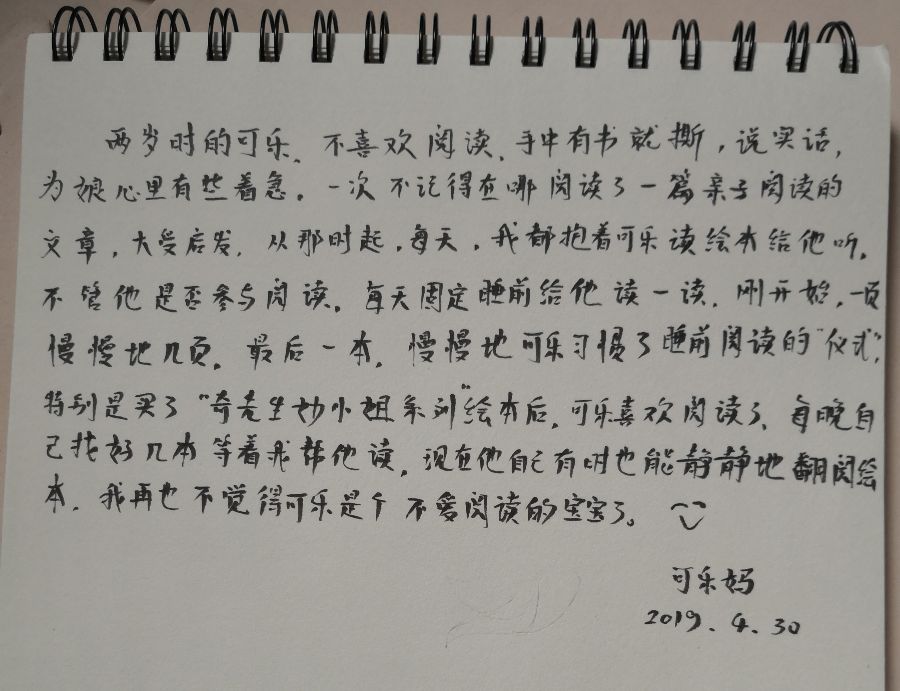 两岁时的可乐、不喜欢阅读、手中有书就撕，说实话，
为娘心里有些着急。一次不记得在哪阅读了一篇亲子阅读的
文章，大受启发，从那时起，每天，我都抱着可乐读绘本给他听。
不管他是否参与阅读。每天固定睡前给他读一读，刚开始，一页
慢慢地几页。最后一本，慢慢地可乐习惯了睡前阅读的“仪式”，
特别是买了“奇先生妙小姐系列”绘本后，可乐喜欢阅读了、每晚自
己找好几本等着我帮他读，现在他自己有时也能静静地翻阅绘
本，我再也不觉得可乐是个不爱阅读的宝宝了。
可乐妈
2019.4.30